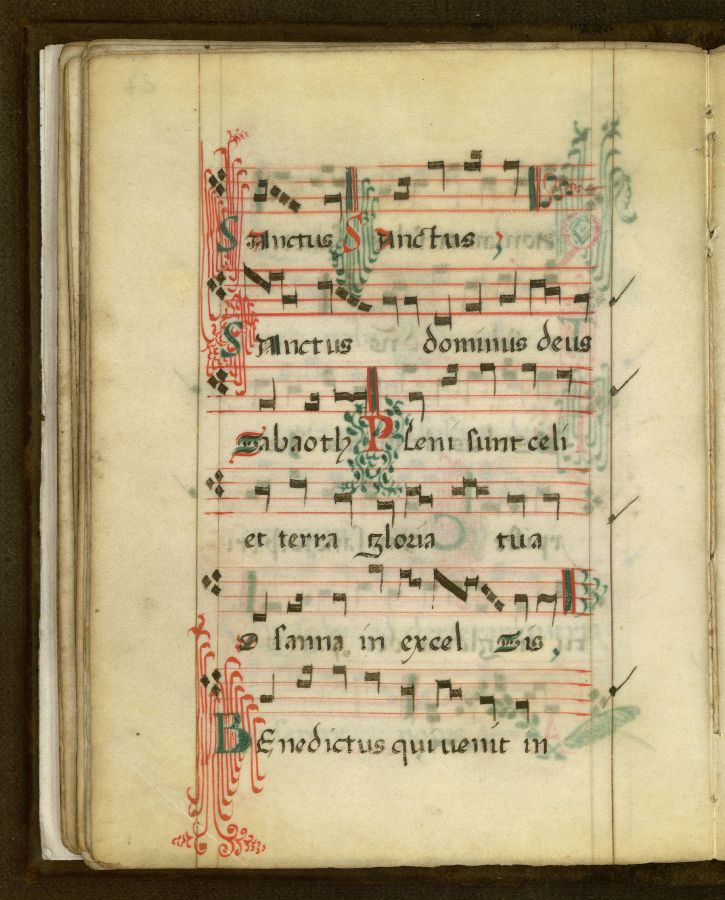 Sanctus Sanctus,
Sanctus dominus deus
Sabaoth Pleni sunt celi
et terra gloria tua
O sanna in excel Sis,
BEnedictus qui uenit in